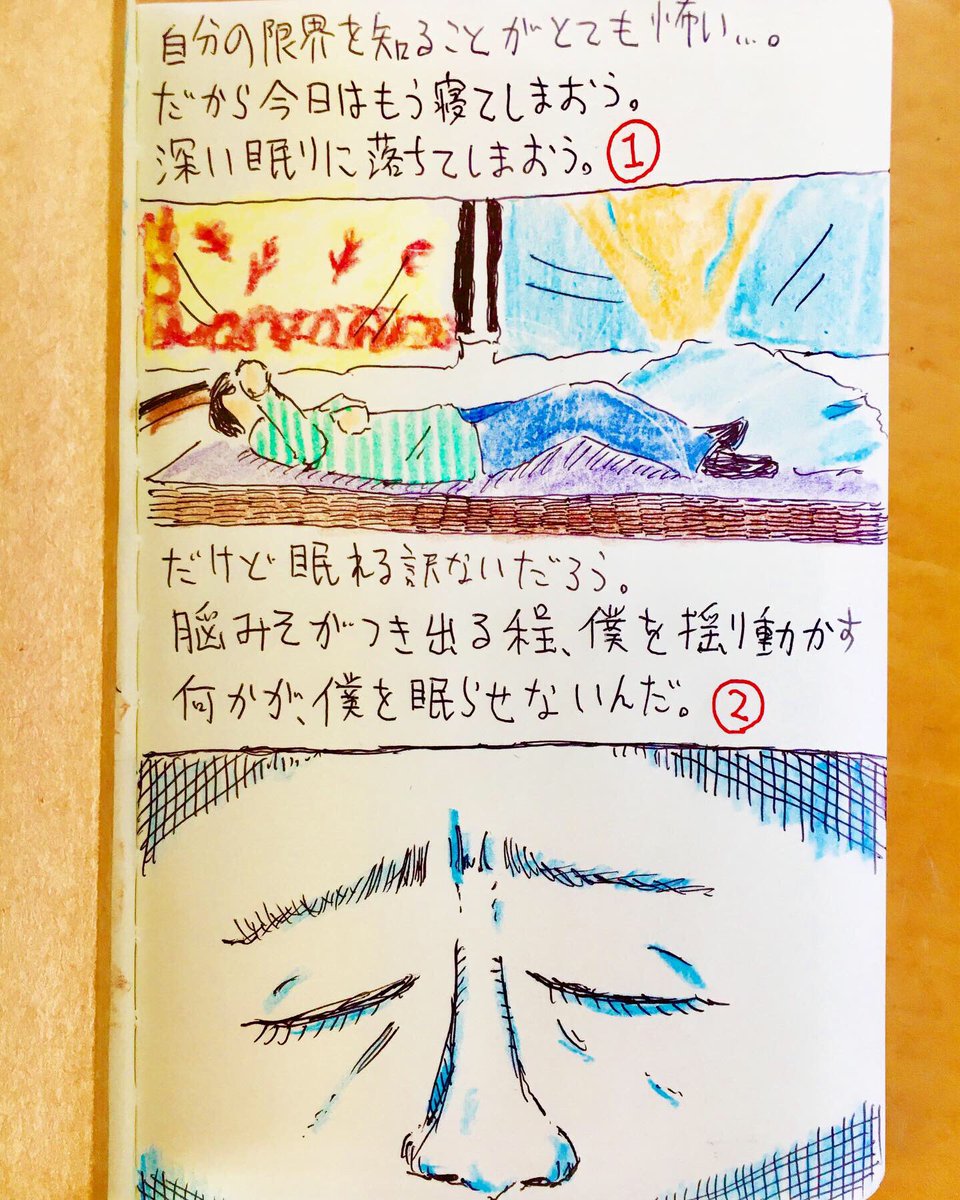 自分の限界を知ることがとても怖い…。
だから今日はもう寝てしまおう。
深い眠りに落ちてしまおう。①
だけど眠れる訳ないだろう。
脳みそがつき出る程、僕を揺り動かす
何かが、僕を眠らせないんだ。②